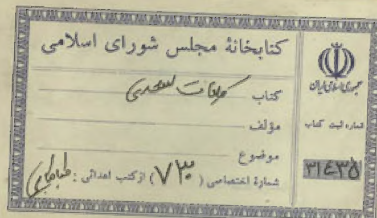 کتابخانهٔ مجلس شورای اسلامی
کتاب
مؤلف
موضوع
شمارهٔ اختصاصی (۷۳۰) از کتب اهدائی : طباطبائی
جمهوری اسلامی ایران
شماره ثبت کتاب
۳۱۴۳۵